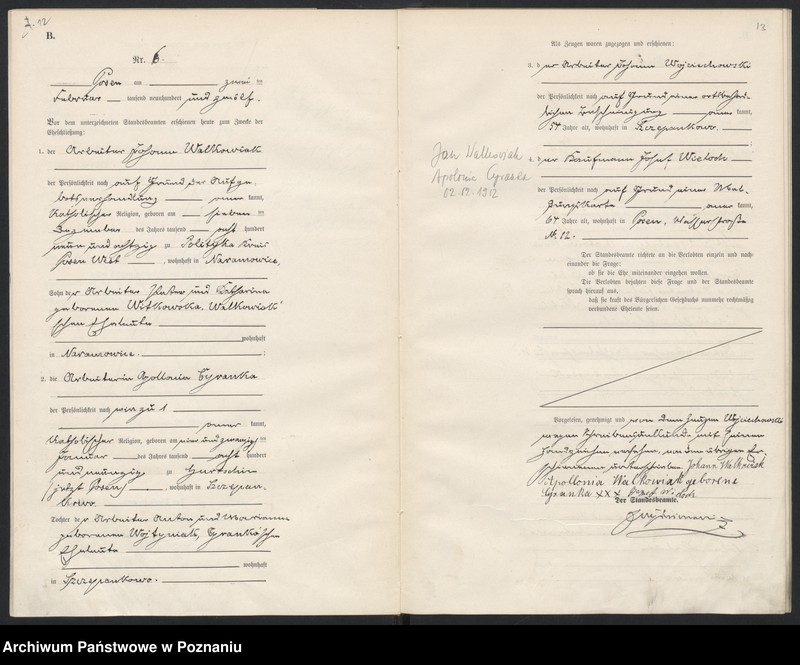 12
B.
Nr. 6.
Posen am zwei ten
Februar tausend neunhundert und zwölf.
Vor dem unterzeichneten Standesbeamten erschienen heute zum Zwecke der
Eheschließung:
1. der Arbeiter Johann Walkowiak
der Persönlichkeit nach auf Grund der Aufge-
botsverhandlung aner kannt,
katholischer Religion, geboren am sieben ten
Dezember des Jahres tausend acht hundert
neun und achtzig zu Kreis
Posen West, wohnhaft in Naramowice,
Sohn der Arbeiter und Katharina
geborenen Witkowska, Walkowiak'
schen Eheleute
wohnhaft
in Naramowice. ;
2. die Arbeiterin Apollonia Cyranka
der Persönlichkeit nach wie zu 1
aner kannt,
katholischer Religion, geboren am vier und zwanzig ten
Januar des Jahres tausend acht hundert
und neunzig zu Gurtschin
(jetzt Posen), wohnhaft in Szczepan-
kowo.
Tochter der Arbeiter Anton und Marianna
geborenen Wojtyniak, Cyranka'schen
Eheleute
wohnhaft
in Szczepankowo.
13
Als Zeugen waren zugezogen und erschienen:
3. der Arbeiter Johann Wojciechowski
der Persönlichkeit nach auf Grund einer ortsbehörd-
lichen Bescheinigung aner kannt,
54 Jahre alt, wohnhaft in Szczepankowo. ;
4. der Kaufmann Josef Wietoch
der Persönlichkeit nach auf Grund einer
aner kannt,
64 Jahre alt, wohnhaft in Posen, Wasserstraße
N. 12.
Jan Walkowiak
Apolonia Cyranka
02.02.1912
Der Standesbeamte richtete an die Verlobten einzeln und nach-
einander die Frage:
ob sie die Ehe miteinander eingehen wollen.
Die Verlobten bejahten diese Frage und der Standesbeamte
sprach hierauf aus,
daß sie kraft des Bürgerlichen Gesetzbuchs nunmehr rechtmäßig
verbundene Eheleute seien.
Vorgelesen, genehmigt und von dem Zeugen Wojciechowski
wegen Schreibensunkunde mit seinem
Handzeichen versehen, von den übrigen Er-
schienenen unterschrieben. Johann Walkowiak
Apollonia Walkowiak geborene
Cyranka xxx Josef
Der Standesbeamte.
Archiwum Państwowe w Poznaniu